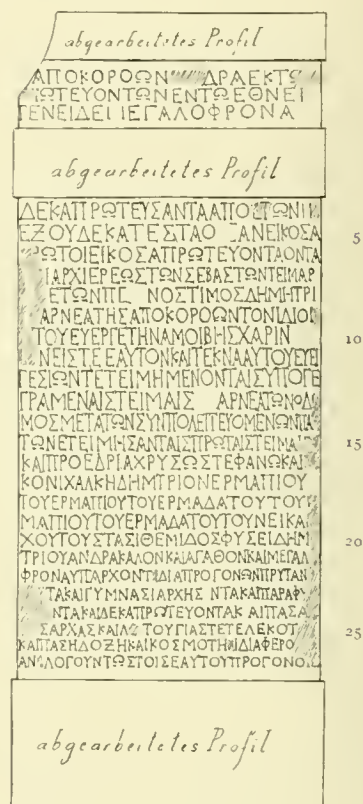 abgearbeitetes Profil
ΑΠΟΚΟΡΟΩΝ ΔΡΑΕΚΤ
ΩΤΕΥΟΝΤΩΝΕΝΤΩΕΘΝΕΙ
ΓΕΝΕΙΔΕΙ ΙΕΓΑΛΟΦΡΟΝΑ
abgearbeitetes Profil
ΔΕΚΑΠΡΩΤΕΥΣΑΝΤΑΑΠΟ ΤΩΝΙ
ΕΞΟΥΔΕΚΑΤΕΣΤΑΟ ΑΝΕΙΚΟΣΑ 5
ΩΤΟΙΕΙΚΟΣΑΠΡΩΤΕΥΟΝΤΑΟΝΤΑ
ΙΑΡΧΙΕΡΕΩΣΤΩΝΣΕΒΑΣΤΩΝΤΕΙΜΑΡ
ΕΤΩΝΠΕ ΝΟΣΤΙΜΟΣΔΗΜΗΤΡΙ
ΑΡΝΕΑΤΗΣΑΠΟΚΟΡΟΩΝΤΟΝΙΔΙΟΝ
ΤΟΥΕΥΕΡΓΕΤΗΝΑΜΟΙΒΗΣΧΑΡΙΝ 10
ΝΕΙΣΤΕΕΑΥΤΟΝΚΑΙΤΕΚΝΑΑΥΤΟΥΕΥΕΡ
ΓΕΣΙΩΝΤΕΤΕΙΜΗΜΕΝΟΝΤΑΙΣΥΠΟΓΕ
ΓΡΑΜΕΝΑΙΣΤΕΙΜΑΙΣ ΑΡΝΕΑΤΩΝΟΔΗ
ΜΟΣΜΕΤΑΤΩΝΣΥΝΠΟΛΕΙΤΕΥΟΜΕΝΩΝΠΑ
ΤΩΝΕΤΕΙΜΗΣΑΝΤΑΙΣΠΡΩΤΑΙΣΤΕΙΜΑ 15
ΚΑΙΠΡΟΕΔΡΙΑΧΡΥΣΩΣΤΕΦΑΝΩΚΑΙ
ΚΟΝΙΧΑΛΚΗΔΗΜΗΤΡΙΟΝΕΡΜΑΠΙΟΥ
ΤΟΥΕΡΜΑΠΙΟΥΤΟΥΕΡΜΑΔΑΤΟΥΤΟΥ
ΜΑΠΙΟΥΤΟΥΕΡΜΑΔΑΤΟΥΤΟΥΝΕΙΚΑ
ΧΟΥΤΟΥΣΤΑΣΙΘΕΜΙΔΟΣΦΥΣΕΙΔΗΜ 20
ΤΡΙΟΥΑΝΔΡΑΚΑΛΟΝΚΑΙΑΓΑΘΟΝΚΑΙΜΕΓΑΛ
ΦΡΟΝΑΥΠΑΡΧΟΝΤΑΔΙΑΠΡΟΓΟΝΩΝΠΡΥΤΑΝ
ΤΑΚΑΙΓΥΜΝΑΣΙΑΡΧΗΣ ΝΤΑΚΑΙΠΑΡΑΦ
ΝΤΑΚΑΙΔΕΚΑΠΡΩΤΕΥΟΝΤΑΚ ΑΙΠΑΣΑ
ΣΑΡΧΑΣΚΑΙΛ ΤΟΥΓΙΑΣΤΕΤΕΛΕΚΟΤ 25
ΚΑΙΠΑΣΗΔΟΞΗΚΑΙΚΟΣΜΟΤΗΤΙΔΙΑΦΕΡΟ
ΑΝΑΛΟΓΟΥΝΤΩΣΤΟΙΣΕΑΥΤΟΥΠΡΟΓΟΝΟΙΣ
abgearbeitetes Profil